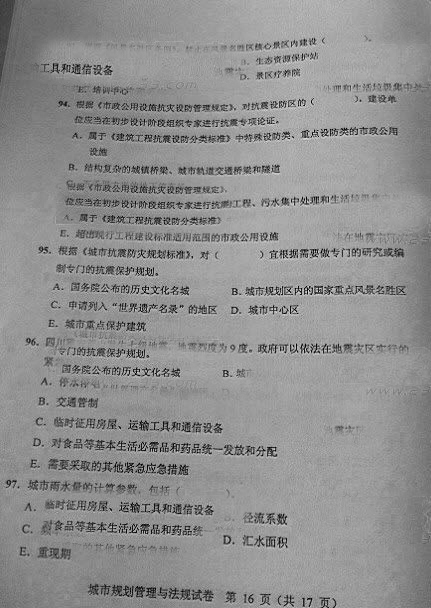 名胜区核心景区内建设（ ）。
B. 生态资源保护站
工具和通信设备
D. 景区疗养院
E. 培训中心
94. 根据《市政公用设施抗灾设防管理规定》，对抗震设防区的（ ）、建设单
位应当在初步设计阶段组织专家进行抗震专项论证。
A. 属于《建筑工程抗震设防分类标准》中特殊设防类、重点设防类的市政公用
设施
B. 结构复杂的城镇桥梁、城市轨道交通桥梁和隧道
根据《市政公用设施抗灾设防管理规定》
位应当在初步设计阶段组织专家进行抗震工程、污水集中处理和生活垃圾
A. 属于《建筑工程抗震设防分类标准》
E. 超出现行工程建设标准适用范围的市政公用设施
95. 根据《城市抗震防灾规划标准》，对（ ）宜根据需要做专门的研究或编
制专门的抗震保护规划。
A. 国务院公布的历史文化名城 B. 城市规划区内的国家重点风景名胜区
C. 申请列入“世界遗产名录”的地区 D. 城市中心区
E. 城市重点保护建筑
96. 四川 地震烈度为 9 度。政府可以依法在地震灾区实行的
专门的抗震保护规划。
国务院公布的历史文化名城 B. 城
A. 停水停电
B. 交通管制
C. 临时征用房屋、运输工具和通信设备
D. 对食品等基本生活必需品和药品统一发放和分配
E. 需要采取的其他紧急应急措施
97. 城市雨水量的计算参数，包括（ ）。
A. 临时征用房屋、运输工具和通信设备
径流系数
C. 对食品等基本生活必需品和药品统一
D. 汇水面积
E. 重现期
城市规划管理与法规试卷 第 16 页（共 17 页）